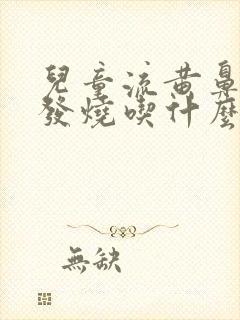 兒童流黃鼻
發燒喫什麼
無缺